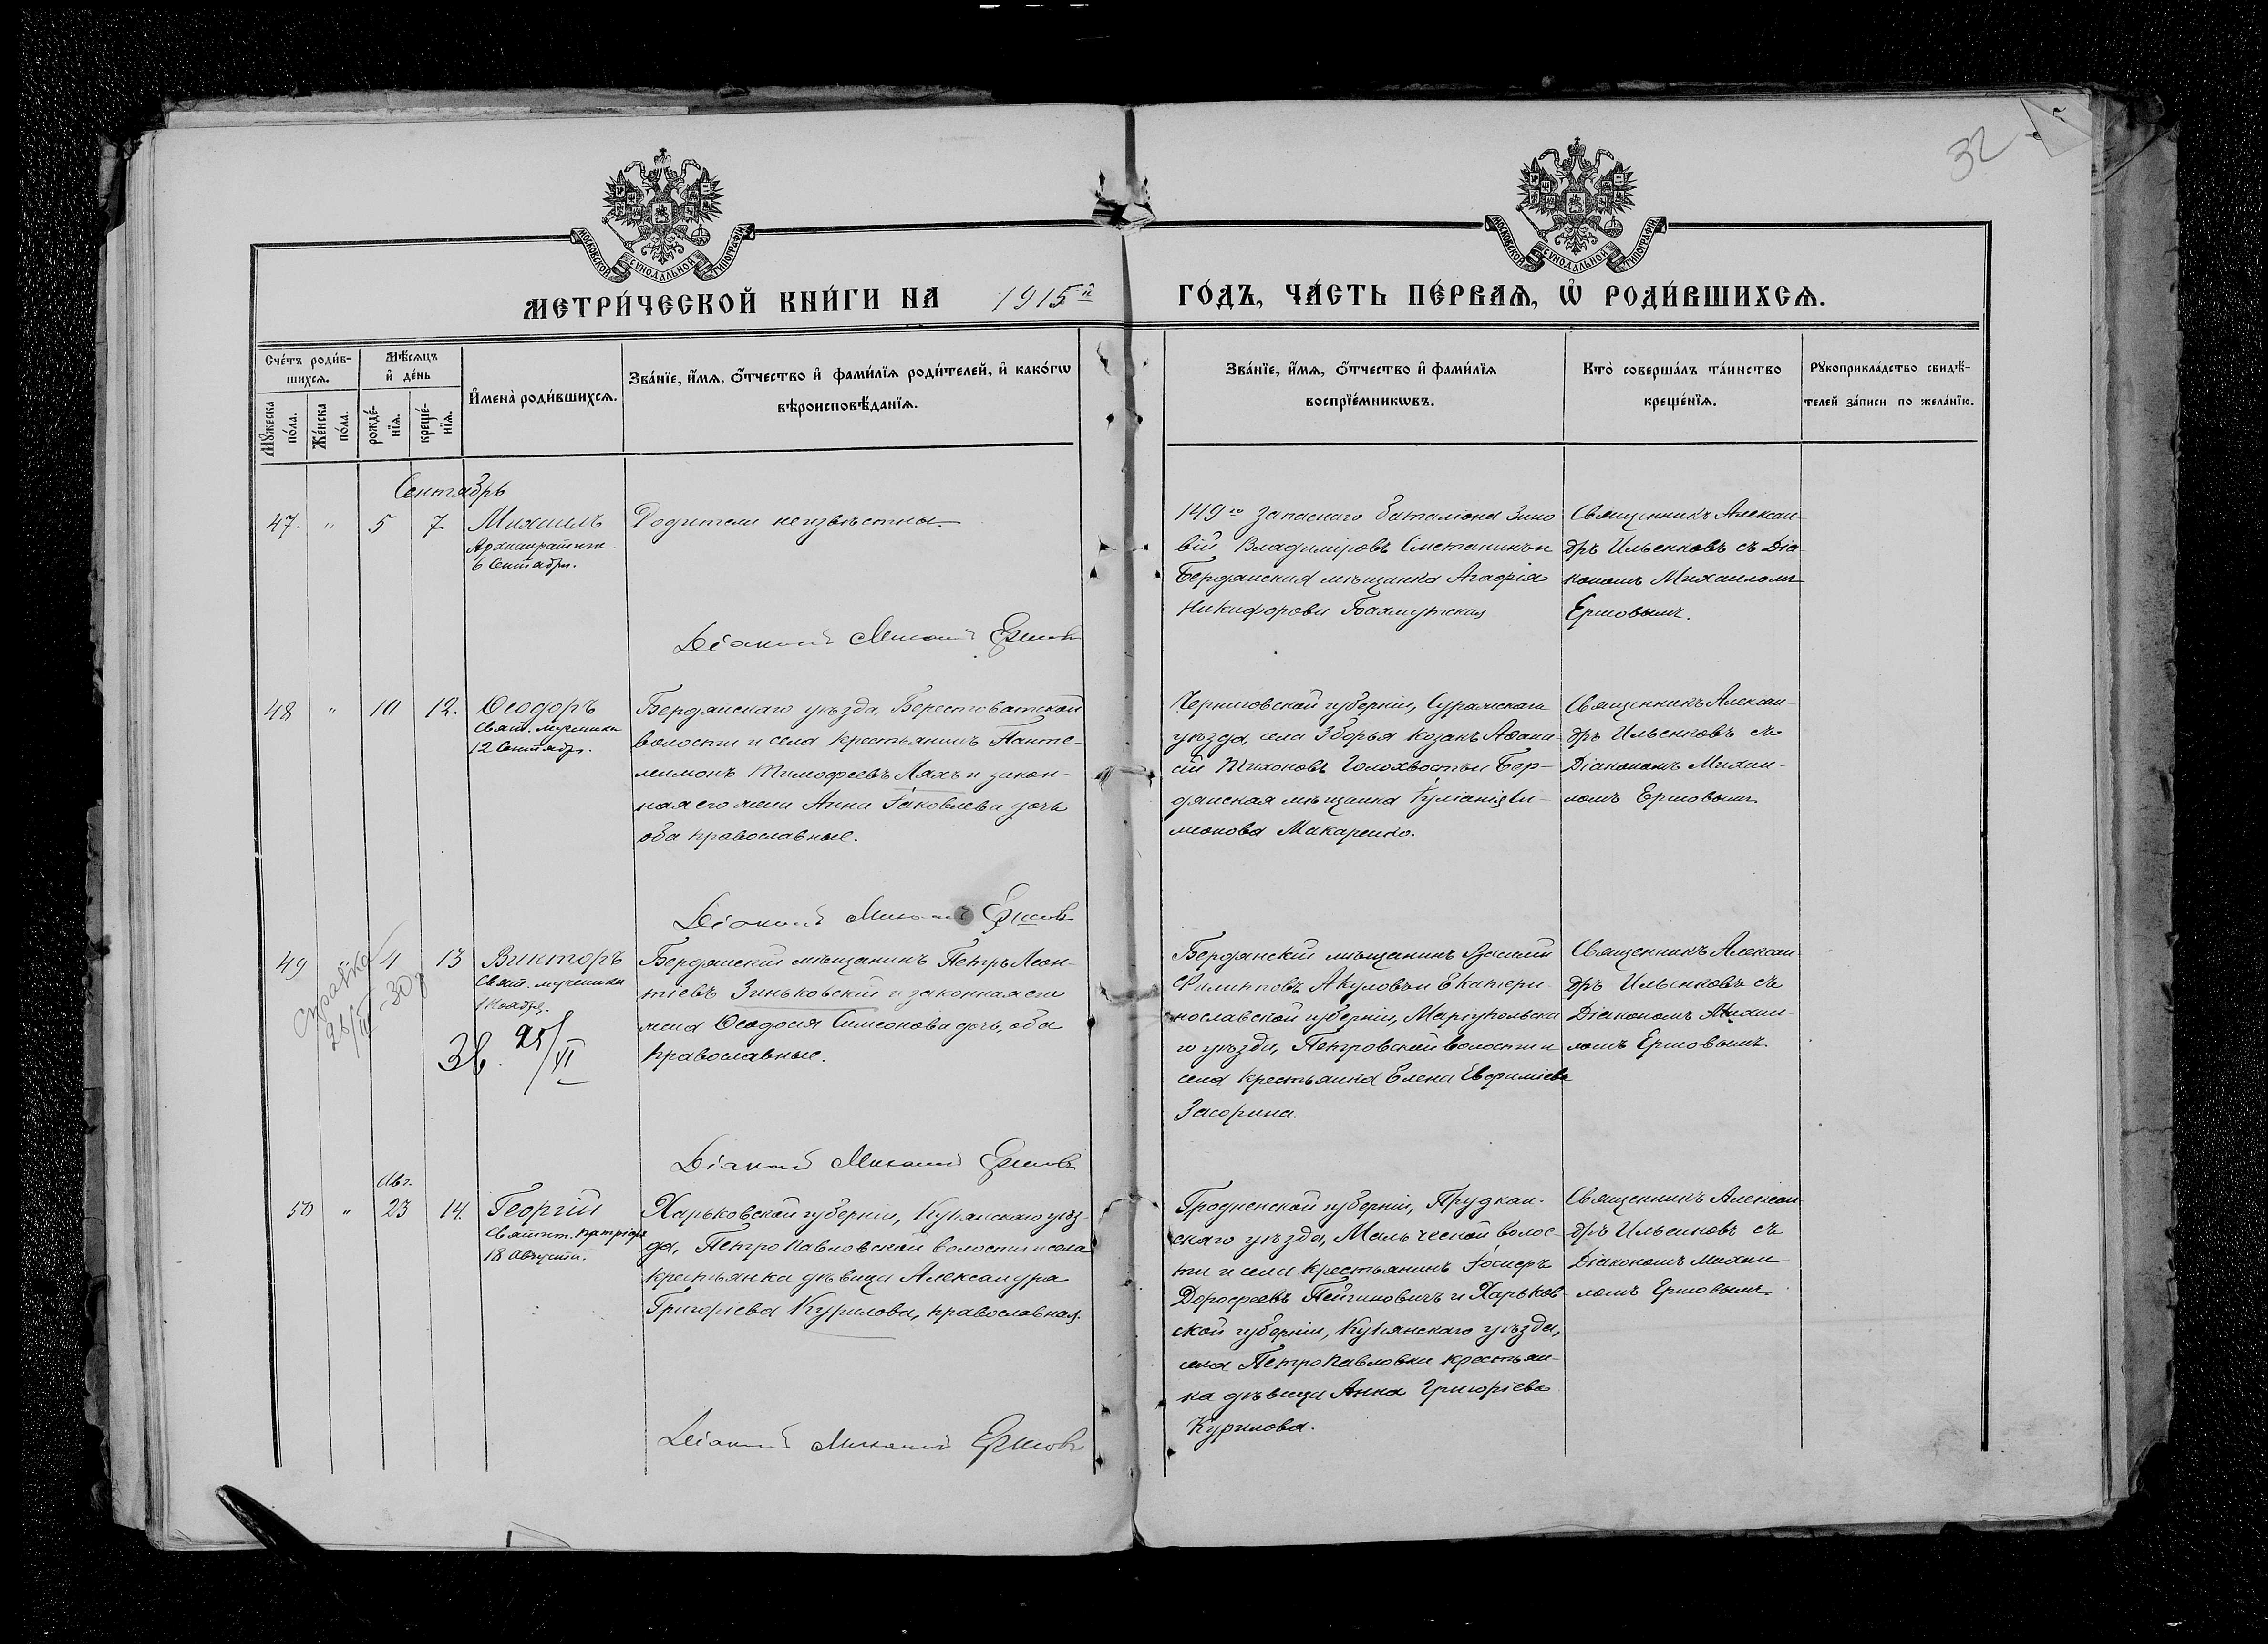 32
МОСКОВСКОЙ СѴНОДАЛЬНОЙ ТИПОГРАФІИ
МОСКОВСКОЙ СѴНОДАЛЬНОЙ ТИПОГРАФІИ
МЕТРИ́ЧЕСКОЙ КНИ́ГИ НА 1915й ГО́ДЪ, ЧА́СТЬ ПЕ́РВАѦ, Ѡ҆ РОДИ́ВШИХСѦ.
Сче́тъ роди́в-
шихсѧ.
Мѣ́сѧцъ
и҆ де́нь
Мꙋ́жеска
по́ла.
Же́нска
по́ла.
рожде́-
нїѧ.
креще́-
нїѧ.
И҆мена̀ роди́вшихсѧ.
Зва́нїе, и҆́мѧ, ѻ҆́тчество и҆ фами́лїѧ роди́телей, и҆ како́гѡ
вѣроисповѣ́данїѧ.
Зва́нїе, и҆́мѧ, ѻ҆́тчество и҆ фами́лїѧ
воспрїе́мникѡвъ.
Кто̀ соверша́лъ та́инство
креще́нїѧ.
Рꙋкоприкла́дство свидѣ́-
телей за́писи по жела́нїю.
Сентябрь
47. " 5 7. Михаилъ
Архистратига
6 Сентября.
Родители неизвѣстны
149го запаснаго баталіона Зино
вій Владиміровъ Сметанинъ и
Бердянская мѣщанка Агафія
Никифорова Бахмутская
Священникъ Алексан-
дръ Ильенковъ съ Діа-
кономъ Михаиломъ
Ершовымъ.
Діаконъ Михаилъ Ершовъ
48 " 10 12. Ѳеодоръ
Свят. мученика
12 Сентября.
Бердянскаго уѣзда, Берестоватской
волости и села крестьянинъ Панте-
леимонъ Тимофеевъ Ляхъ и закон-
ная его жена Анна Іаковлева дочь
оба православные.
Черниговской губерніи, Суражскаго
уѣзда, села козакъ Афана-
сій Тихоновъ Голохвостъ и Бер-
дянская мѣщанка Іуліанія Си-
меонова Макаренко.
Священникъ Алексан-
дръ Ильенковъ съ
Діакономъ Михаи-
ломъ Ершовымъ
Діаконъ Михаилъ Ершовъ
49 " 4 13 Викторъ
Свят. мученика
Ноября.
справка
28/III-30 г
Зв. 25/VI
Бердянскій мѣщанинъ Петръ Леон-
тіевъ Зиньковскій и законная его
жена Ѳеодосія Симеонова дочь, оба
православные.
Бердянскій мѣщанинъ
Филипповъ Акуловъ и Екатери-
нославской губерніи, Маріупольска
го уѣзда, Петровской волости и
села крестьянка Елена Евфиміева
Засорина.
Священникъ Алексан
дръ Ильенковъ съ
Діакономъ Михаи-
ломъ Ершовымъ.
Діаконъ Михаилъ Ершовъ
Авг.
50 " 23 14. Георгій
Святит. патріарх
18 Августа.
Харьковской губерніи, Купянскаго уѣз-
да, Петропавловской волости и села
крестьянка дѣвица Александра
Григоріева Курилова, православная.
Гродненской губерніи, Пружан-
скаго уѣзда, Мальческой волос-
ти и села крестьянинъ Іосифъ
Дорофеевъ и Харьков-
ской губерніи, Купянскаго уѣзда,
села Петропавловки крестьян-
ка дѣвица Анна Григоріева
Курилова.
Священникъ Алексан-
дръ Ильенковъ съ
Діакономъ Михаи
ломъ Ершовымъ
Діаконъ Михаилъ Ершовъ